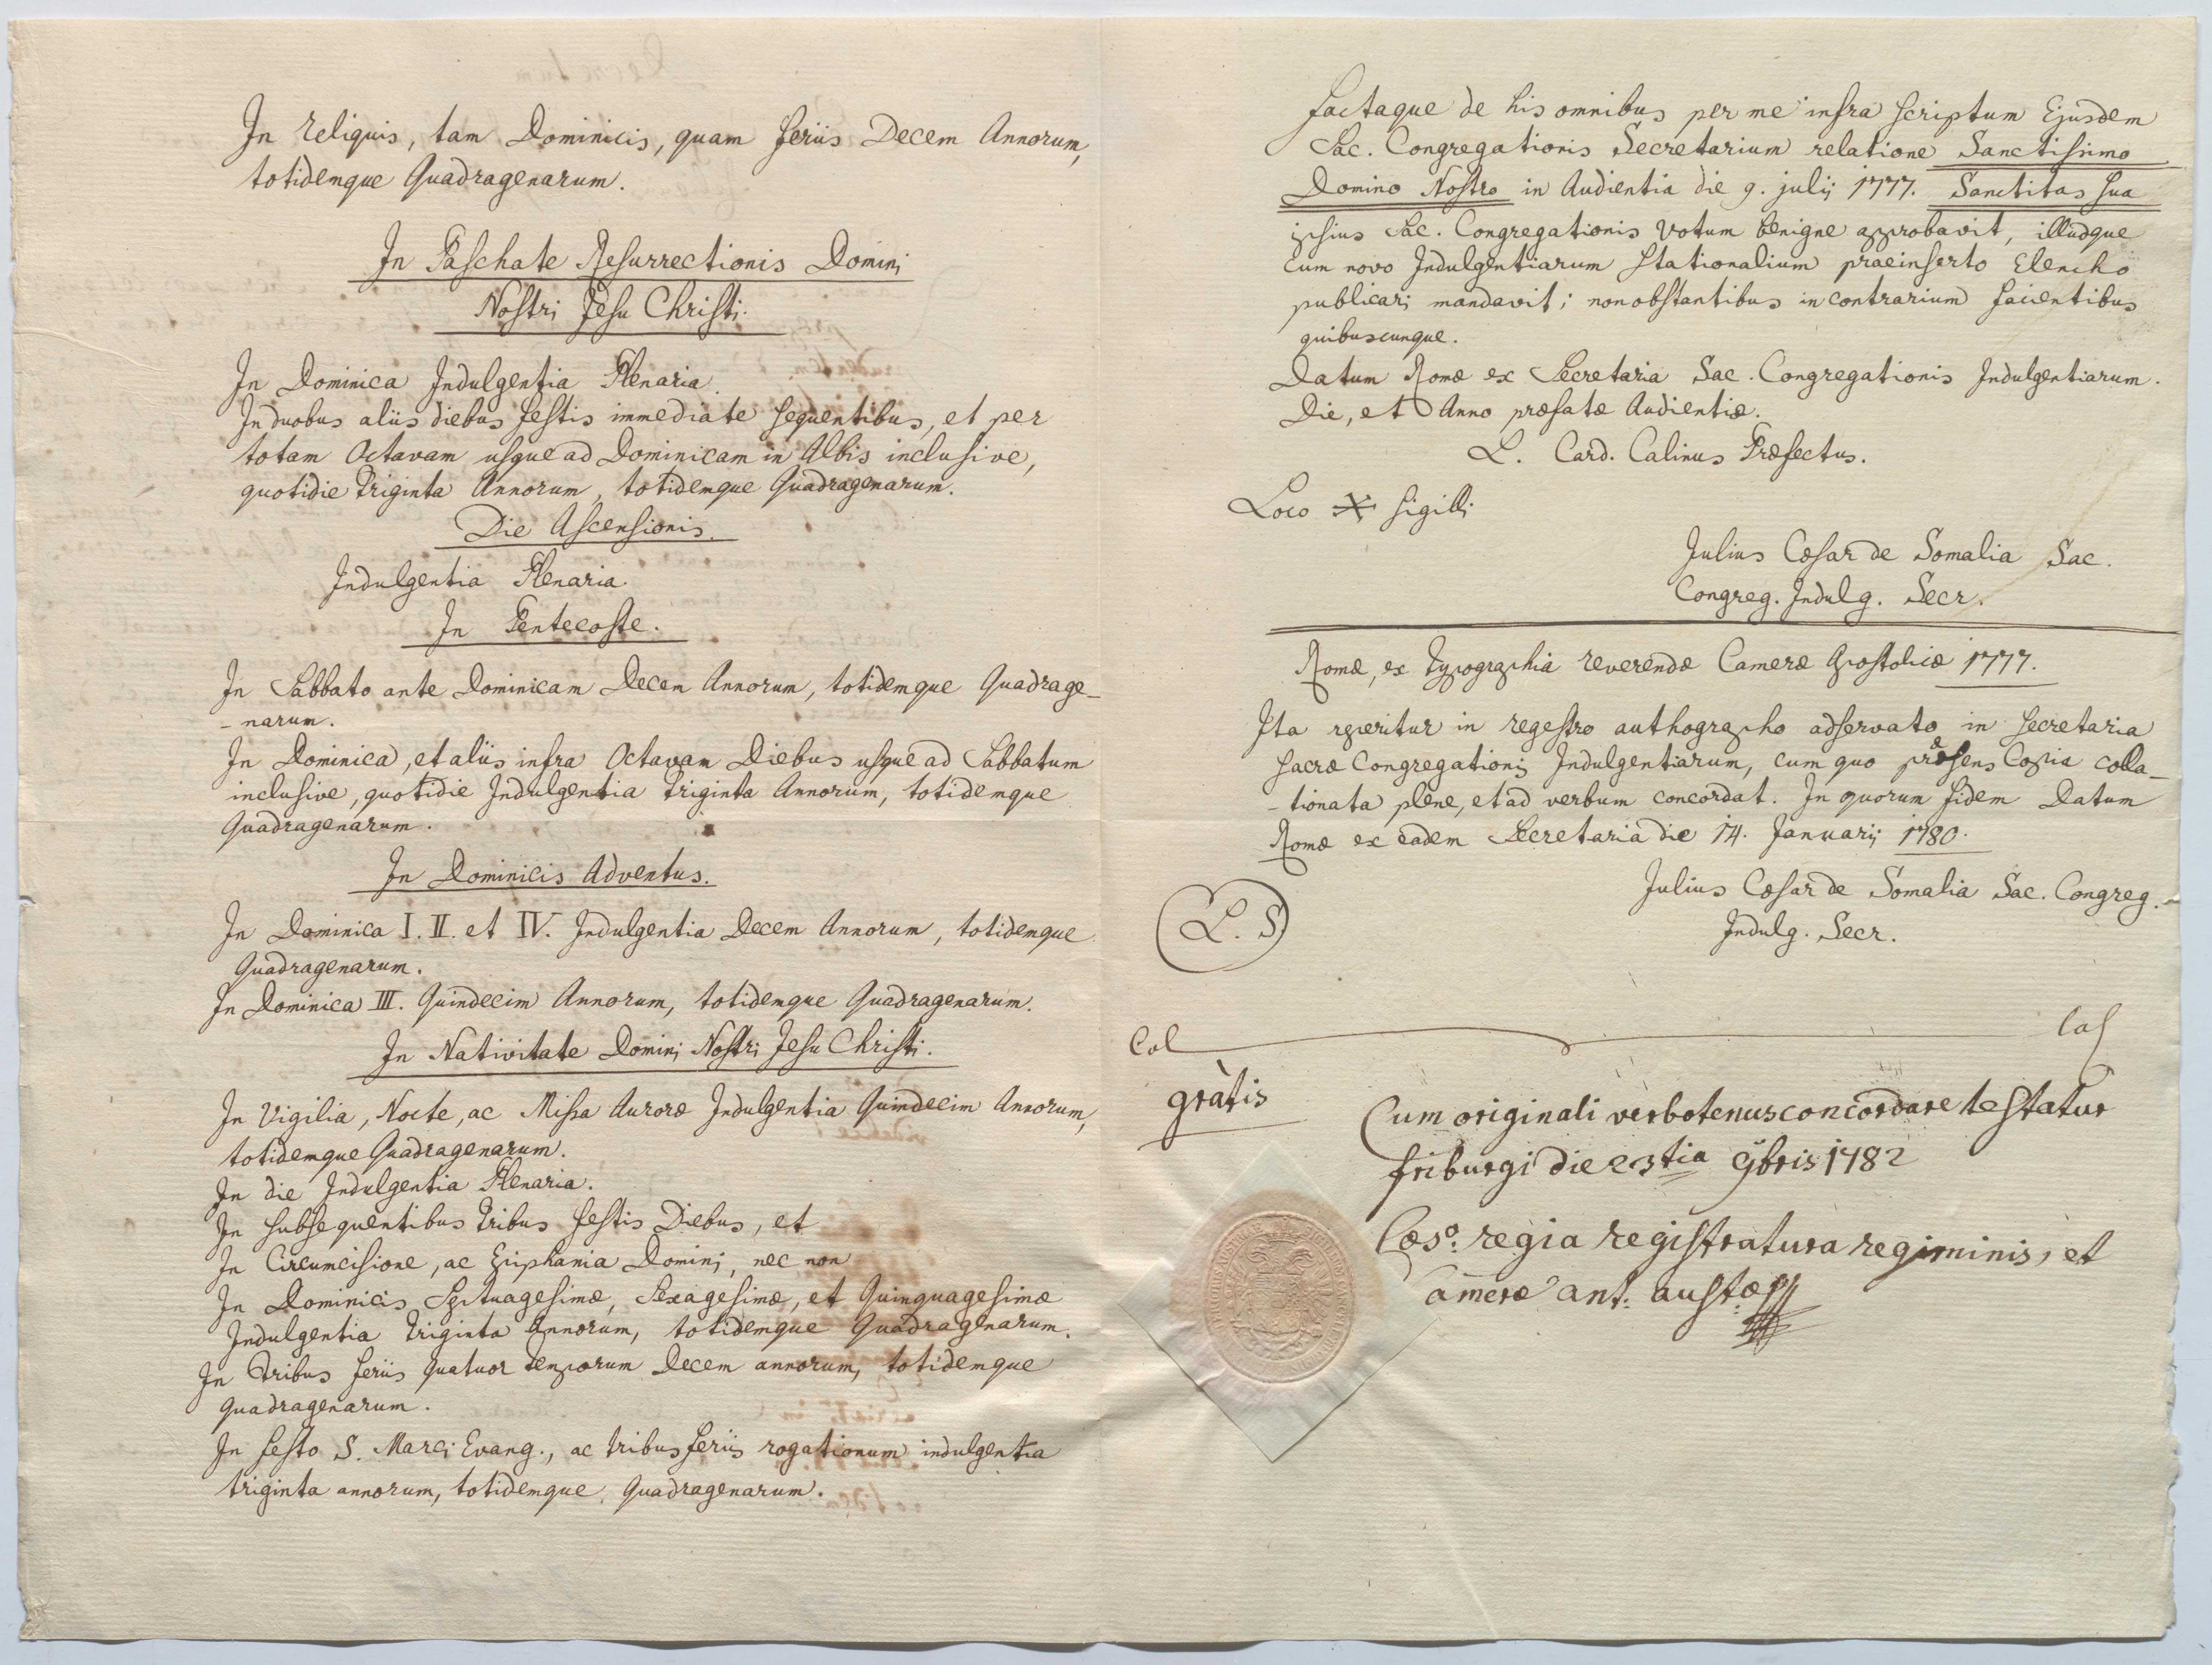 In reliquis, tam Dominicis, quam feriis Decem Annorum,
totidemque Quadragenarum.
In Paschate Resurrectionis Domini
Nostri Jesu Christi.
In Dominica Indulgentia Plenaria.
In duobus aliis diebus festis immediate sequentibus, et per
totam Octavam usque ad Dominicam in Albis inclusive,
quotidie Triginta Annorum, totidemque Quadragenarum.
Die Ascensionis.
Indulgentia Plenaria.
In Pentecoste.
In Sabbato ante Dominicam Decem Annorum, totidemque Quadrage-
-narum.
In Dominica, et aliis infra Octavam Diebus usque ad Sabbatum
inclusive, quotidie Indulgentia Triginta Annorum, totidemque
Quadragenarum.
In Dominicis Adventus.
In Dominica I. II. et IV. Indulgentia Decem Annorum, totidemque
Quadragenarum.
In Dominica III. Quindecim Annorum, totidemque Quadragenarum.
In Nativitate Domini Nostri Jesu Christi.
In Vigilia, Nocte, ac Missa Auroræ Indulgentia Quindecim Annorum,
totidemque Quadragenarum.
In die Indulgentia Plenaria.
In subsequentibus Tribus festis Diebus, et
In Circumcisione, ac Epiphania Domini, nec non
In Dominicis Septuagesimæ, Sexagesimæ, et Quinquagesimæ
Indulgentia Triginta Annorum, totidemque Quadragenarum.
In Tribus feriis Quatuor Temporum Decem annorum, totidemque
Quadragenarum.
In festo S. Marci Evang., ac tribus feriis rogationum indulgentia
triginta annorum, totidemque Quadragenarum.
factaque de his omnibus per me infra scriptum Ejusdem
Sac. Congregationis Secretarium relatione Sanctissimo
Domino Nostro in Audientia die 9. julij 1777. Sanctitas sua
ipsius Sac. Congregationis Votum benigne approbavit, illudque
cum novo Indulgentiarum Stationalium praeinserto Elencho
publicari mandavit; non obstantibus in contrarium facientibus
quibuscunque.
Datum Romæ ex Secretaria Sac. Congregationis Indulgentiarum.
Die, et Anno præfatæ Audientiæ.
L. Card. Calinus Præfectus.
Loco sigilli
Julius Cæsar de Somalia Sac.
Congreg. Indulg. Secr.
Romæ, ex Typographia reverendæ Cameræ Apostolicæ 1777.
Ita reperitur in regestro authographo adservato in secretaria
sacræ Congregationis Indulgentiarum, cum quo præsens Copia colla-
-tionata plene, et ad verbum concordat. In quorum fidem Datum
Romæ ex eadem Secretaria die 14. Januarij 1780.
Julius Cæsar de Somalia Sac. Congreg.
Indulg. Secr.
L. S.
Col
gràtis
Cum originali verbotenus concordare testatur
friburgi die 23tia 9bris 1782
Cæsº: regia registratura regiminis, et
Cameræ ant: aust:æ